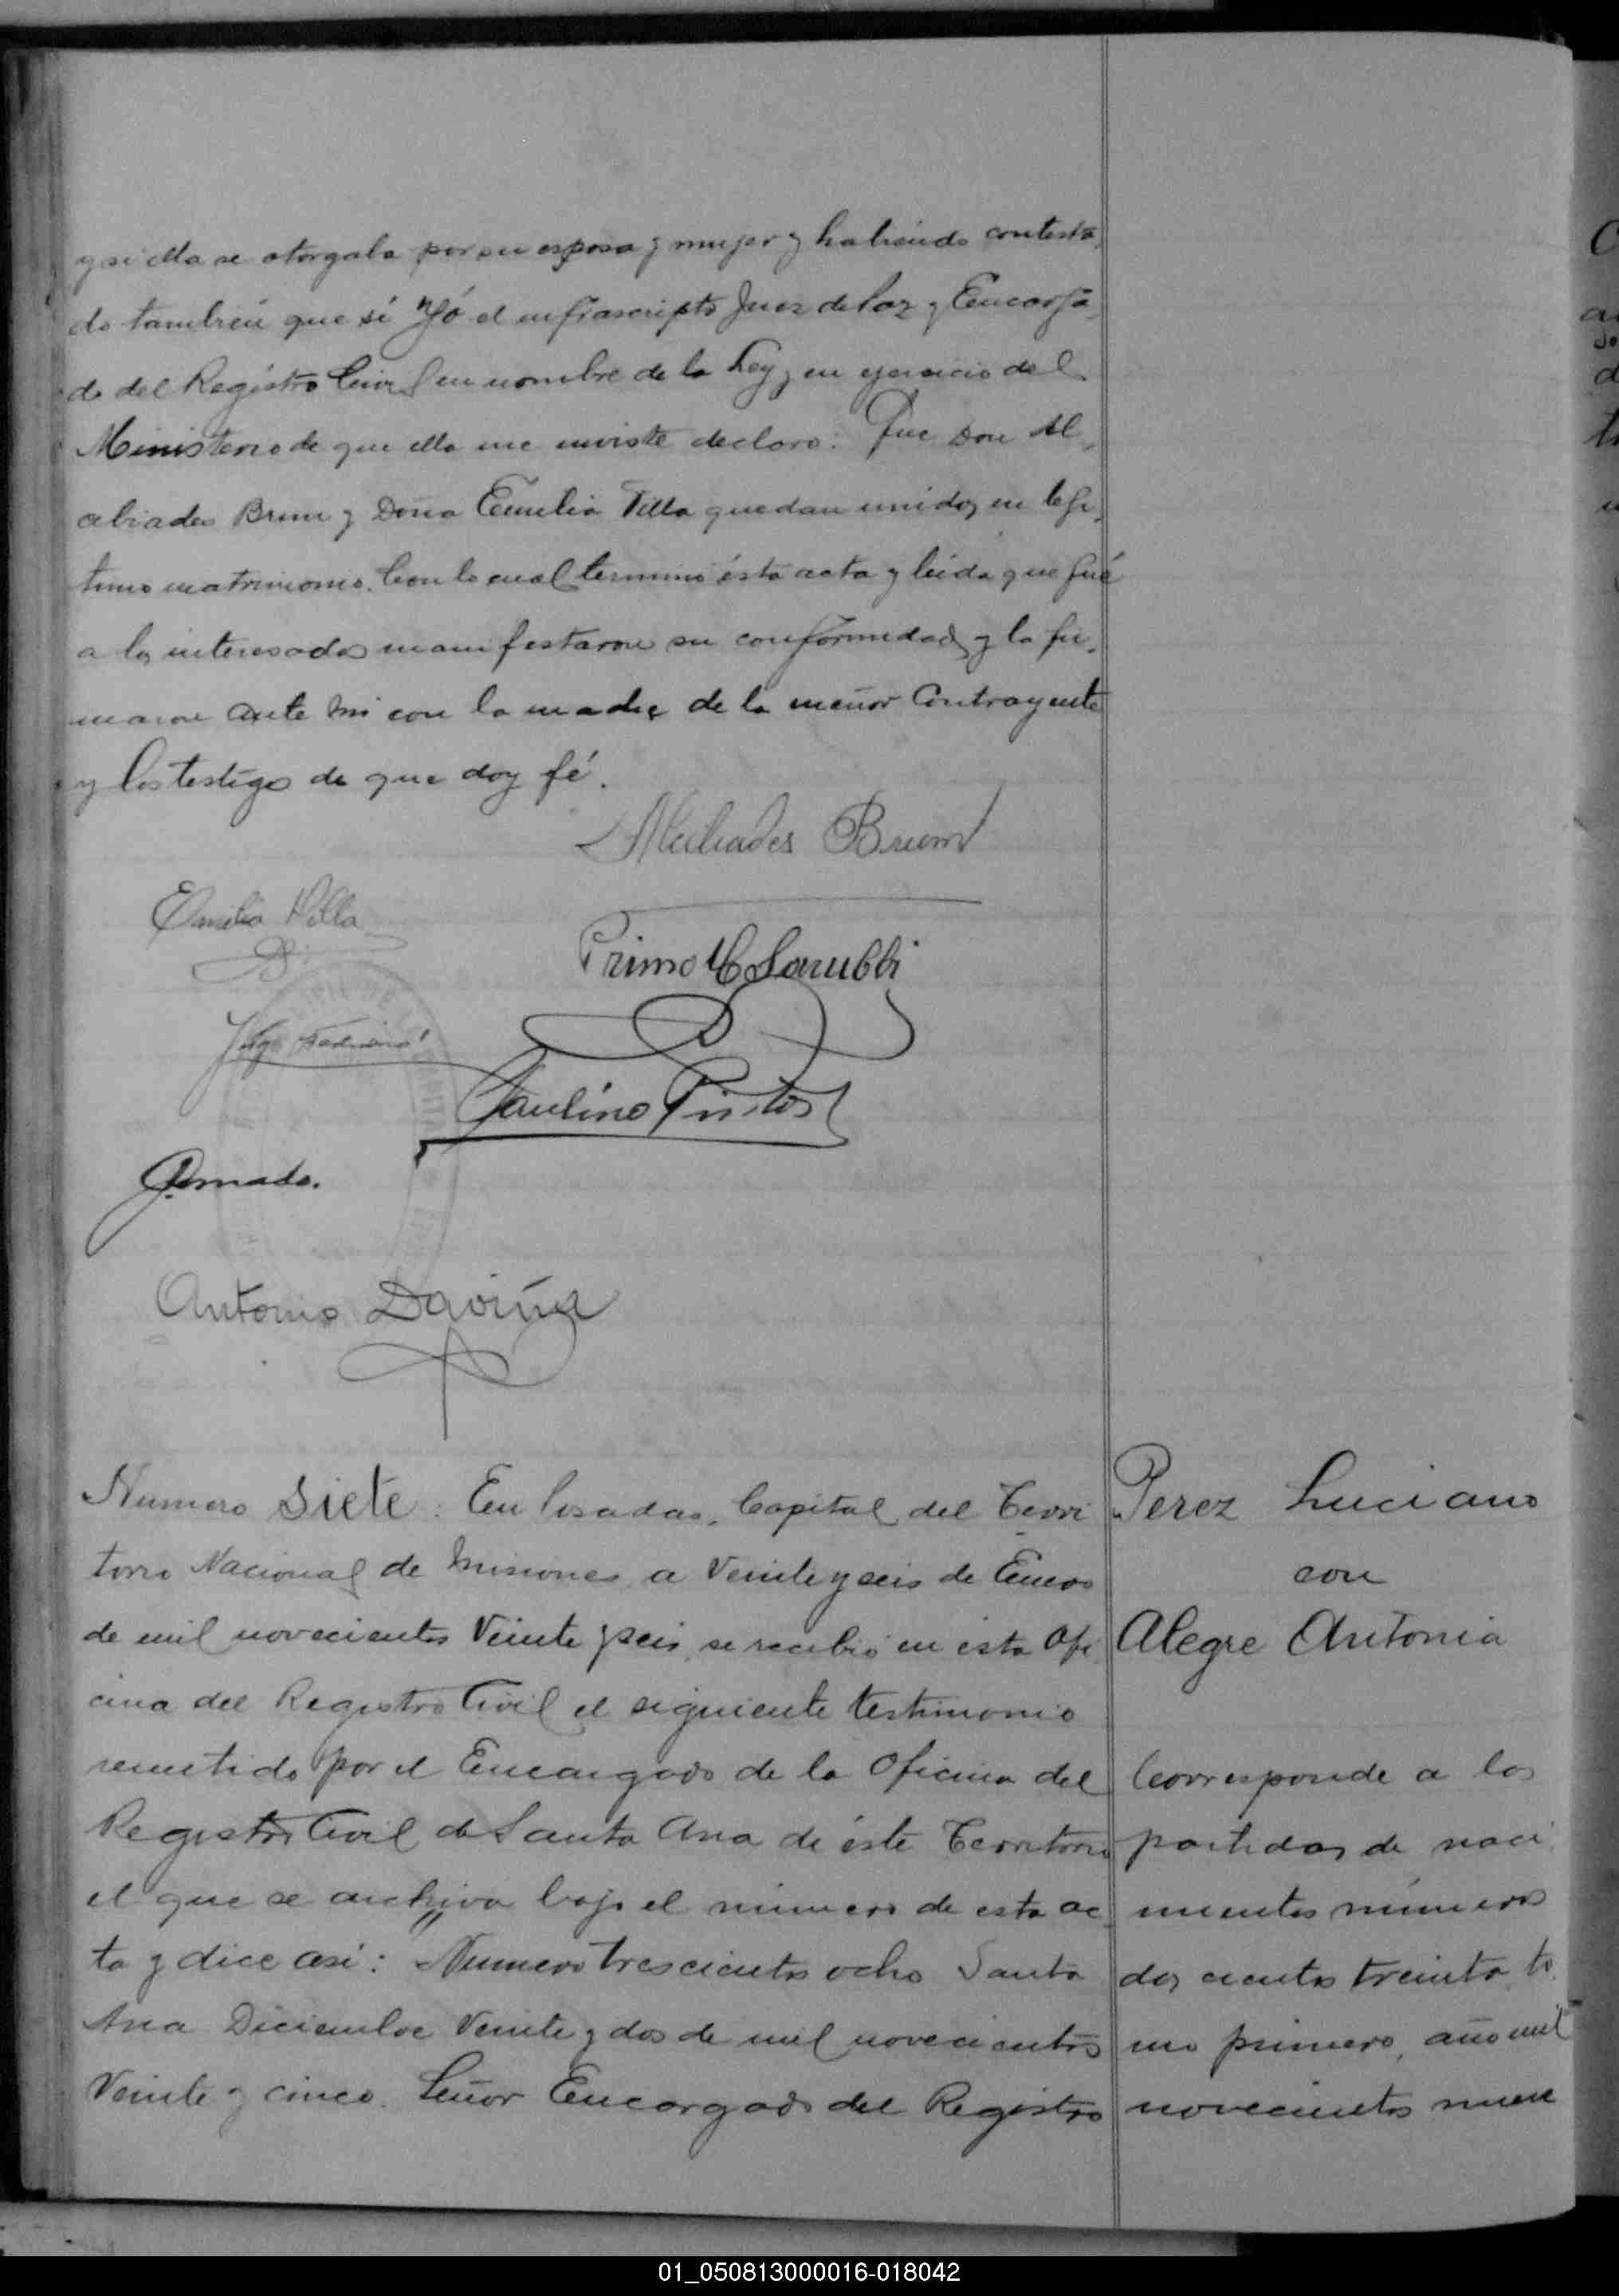 y si ella se otorgaba por su esposa y mujer y habiendo contesta,
do también que sí Yó el infrascripto Juez de Paz y Encarga,
do del Registro Civil en nombre de la Ley y en ejercicio del
Ministerio de que ella me inviste declaro: Que Don Al,
cibiades Brum y Doña Emilia Villa quedan unidos en legi,
timo matrimonio. Con lo cual terminó ésta acta y leida que fué
a los interesados manifestaron su conformidad y la fir,
maron ante mi con la madre de la menor Contrayente
y los testigos de que doy fé.
Alcibiades Brum
Emilia Villa
Primo Sarubbi
Paulino Pintos
Antonio Daviña
Numero Siete: En Posadas, Capital del Terri
torio Nacional de Misiones a Veinte y seis de Enero
de mil novecientos Veinte y seis, se recibió en esta Ofi
cina del Registro Civil el siguiente testimonio
remitido por el Encargado de la Oficina del
Registro Civil de Santa Ana de éste Territorio
el que se archiva bajo el número de esta ac
ta y dice así: Numero trescientos ocho Santa
Ana Diciembre Veinte y dos de mil novecientos
Veinte y cinco. Señor Encargado del Registro
Perez Luciano
con
Alegre Antonia
Corresponde a las
partidas de naci
mientos números
dos cientos treinta to
mo primero, año mil
novecientos nueve
01_050813000016-018042